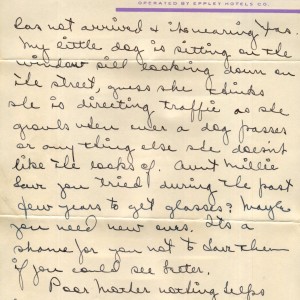 OPERATED BY EPPLEY HOTELS CO.
has not arrived & its nearing
My little dog is sitting on the
window sill looking down on
the street, guess she thinks
she is directing traffic as she
growls when ever a dog passes
or any thing else she doesn't
like the looks of. Aunt Millie
have you tried during the past
few years to get glasses? Maybe
you need new ones. Its a
shame for you not to have them
if you could see better.
Poor Mother nothing helps